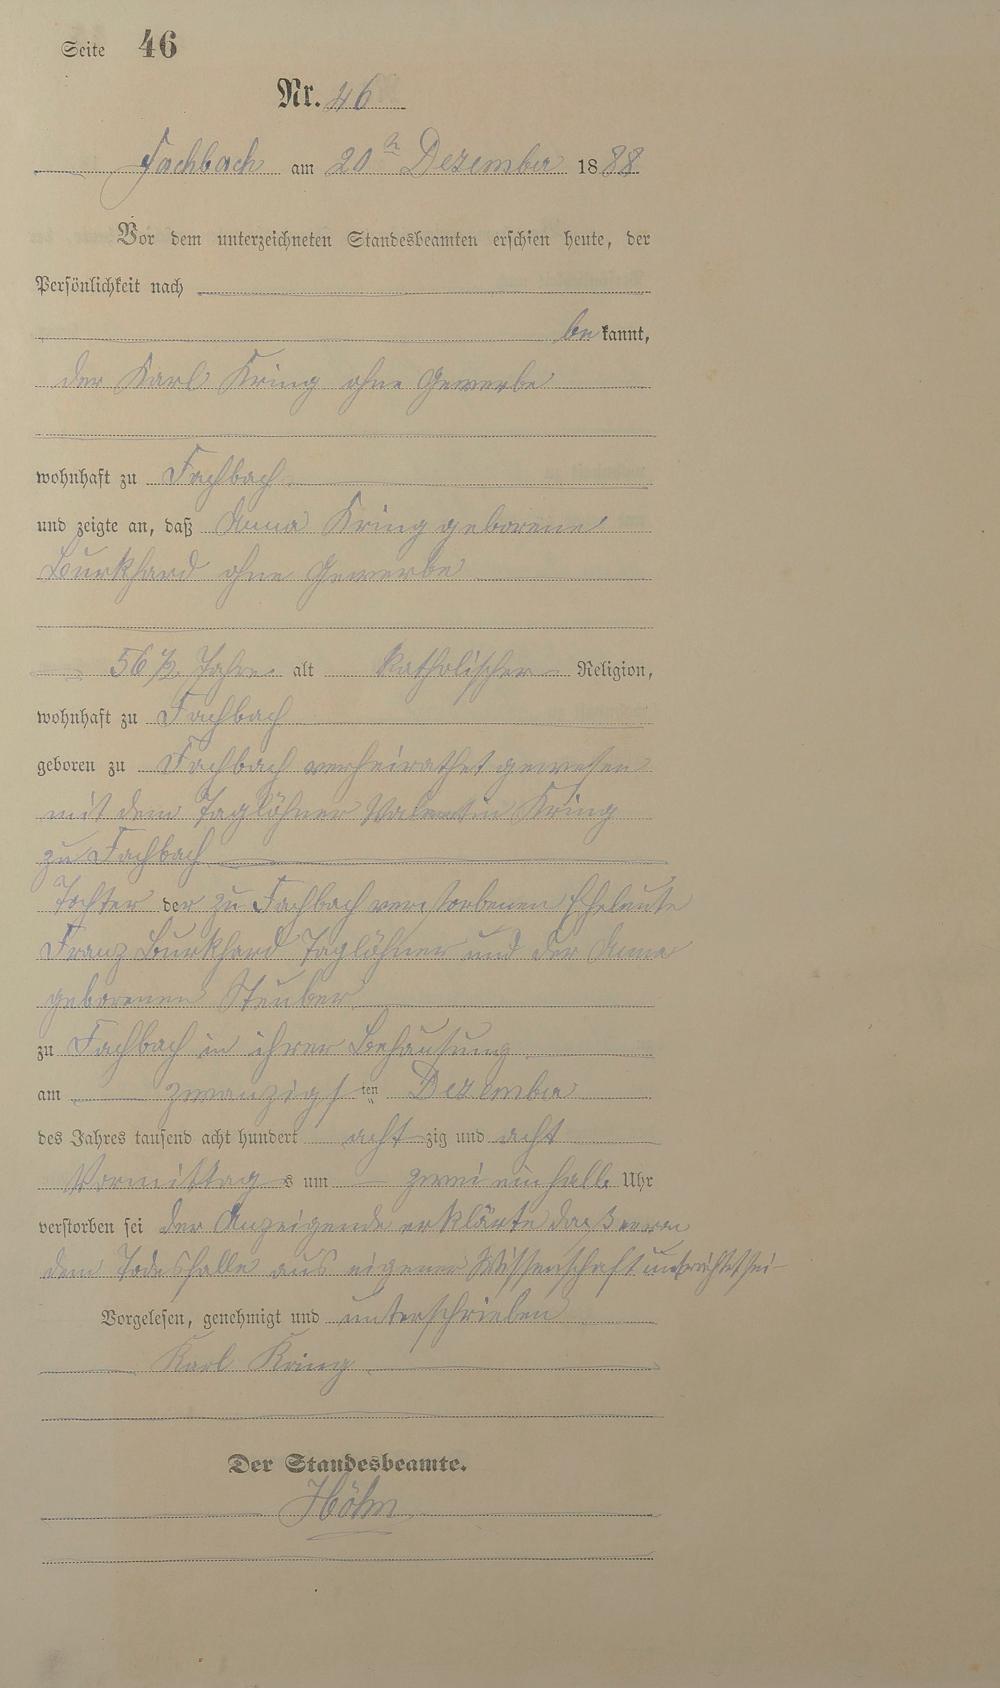 Seite 46
Nr. 46
Fachbach am 20n Dezember 1888
Vor dem unterzeichneten Standesbeamten erschien heute, der
Persönlichkeit nach
bekannt,
der Karl Kring ohne Gewerbe
wohnhaft zu Fachbach
und zeigte an, daß Anna Kring geborene
Burkhard ohne Gewerbe
56 1/2 Jahre alt katholischer Religion,
wohnhaft zu Fachbach
geboren zu Fachbach verheirathet gewesen
mit dem Taglöhner Valentin Kring
zu Fachbach
Tochter der zu Fachbach verstorbenen Eheleute
Franz Burkhard Taglöhner und der Anna
geborenen Steuber
zu Fachbach in ihrer Behausung
am zwanzigsten Dezember
des Jahres tausend acht hundert achtzig und acht
Vormittags um zwei einhalb Uhr
verstorben sei der Anzeigende erklärte daß er von
dem Todesfalle aus eigener Wissenschaft unterrichtet sei
Vorgelesen, genehmigt und unterschrieben
Karl Kring
Der Standesbeamte.
Höhn